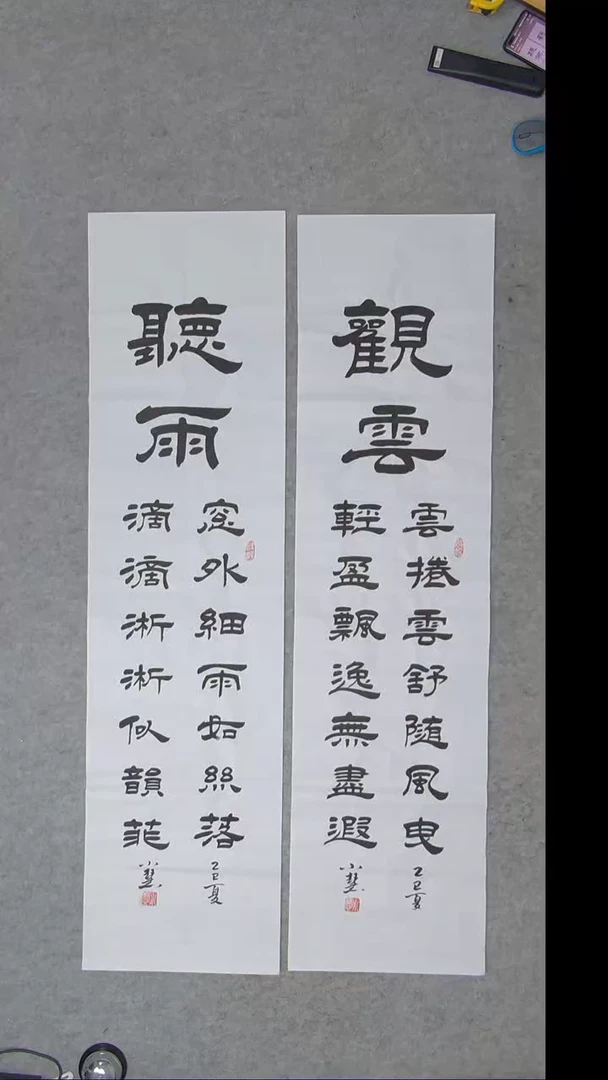 觀雲
雲捲雲舒随風曳
輕盈飄逸無盡遐
乙巳夏
聽雨
窓外細雨如絲落
滴滴淅淅似韻菲
乙巳夏